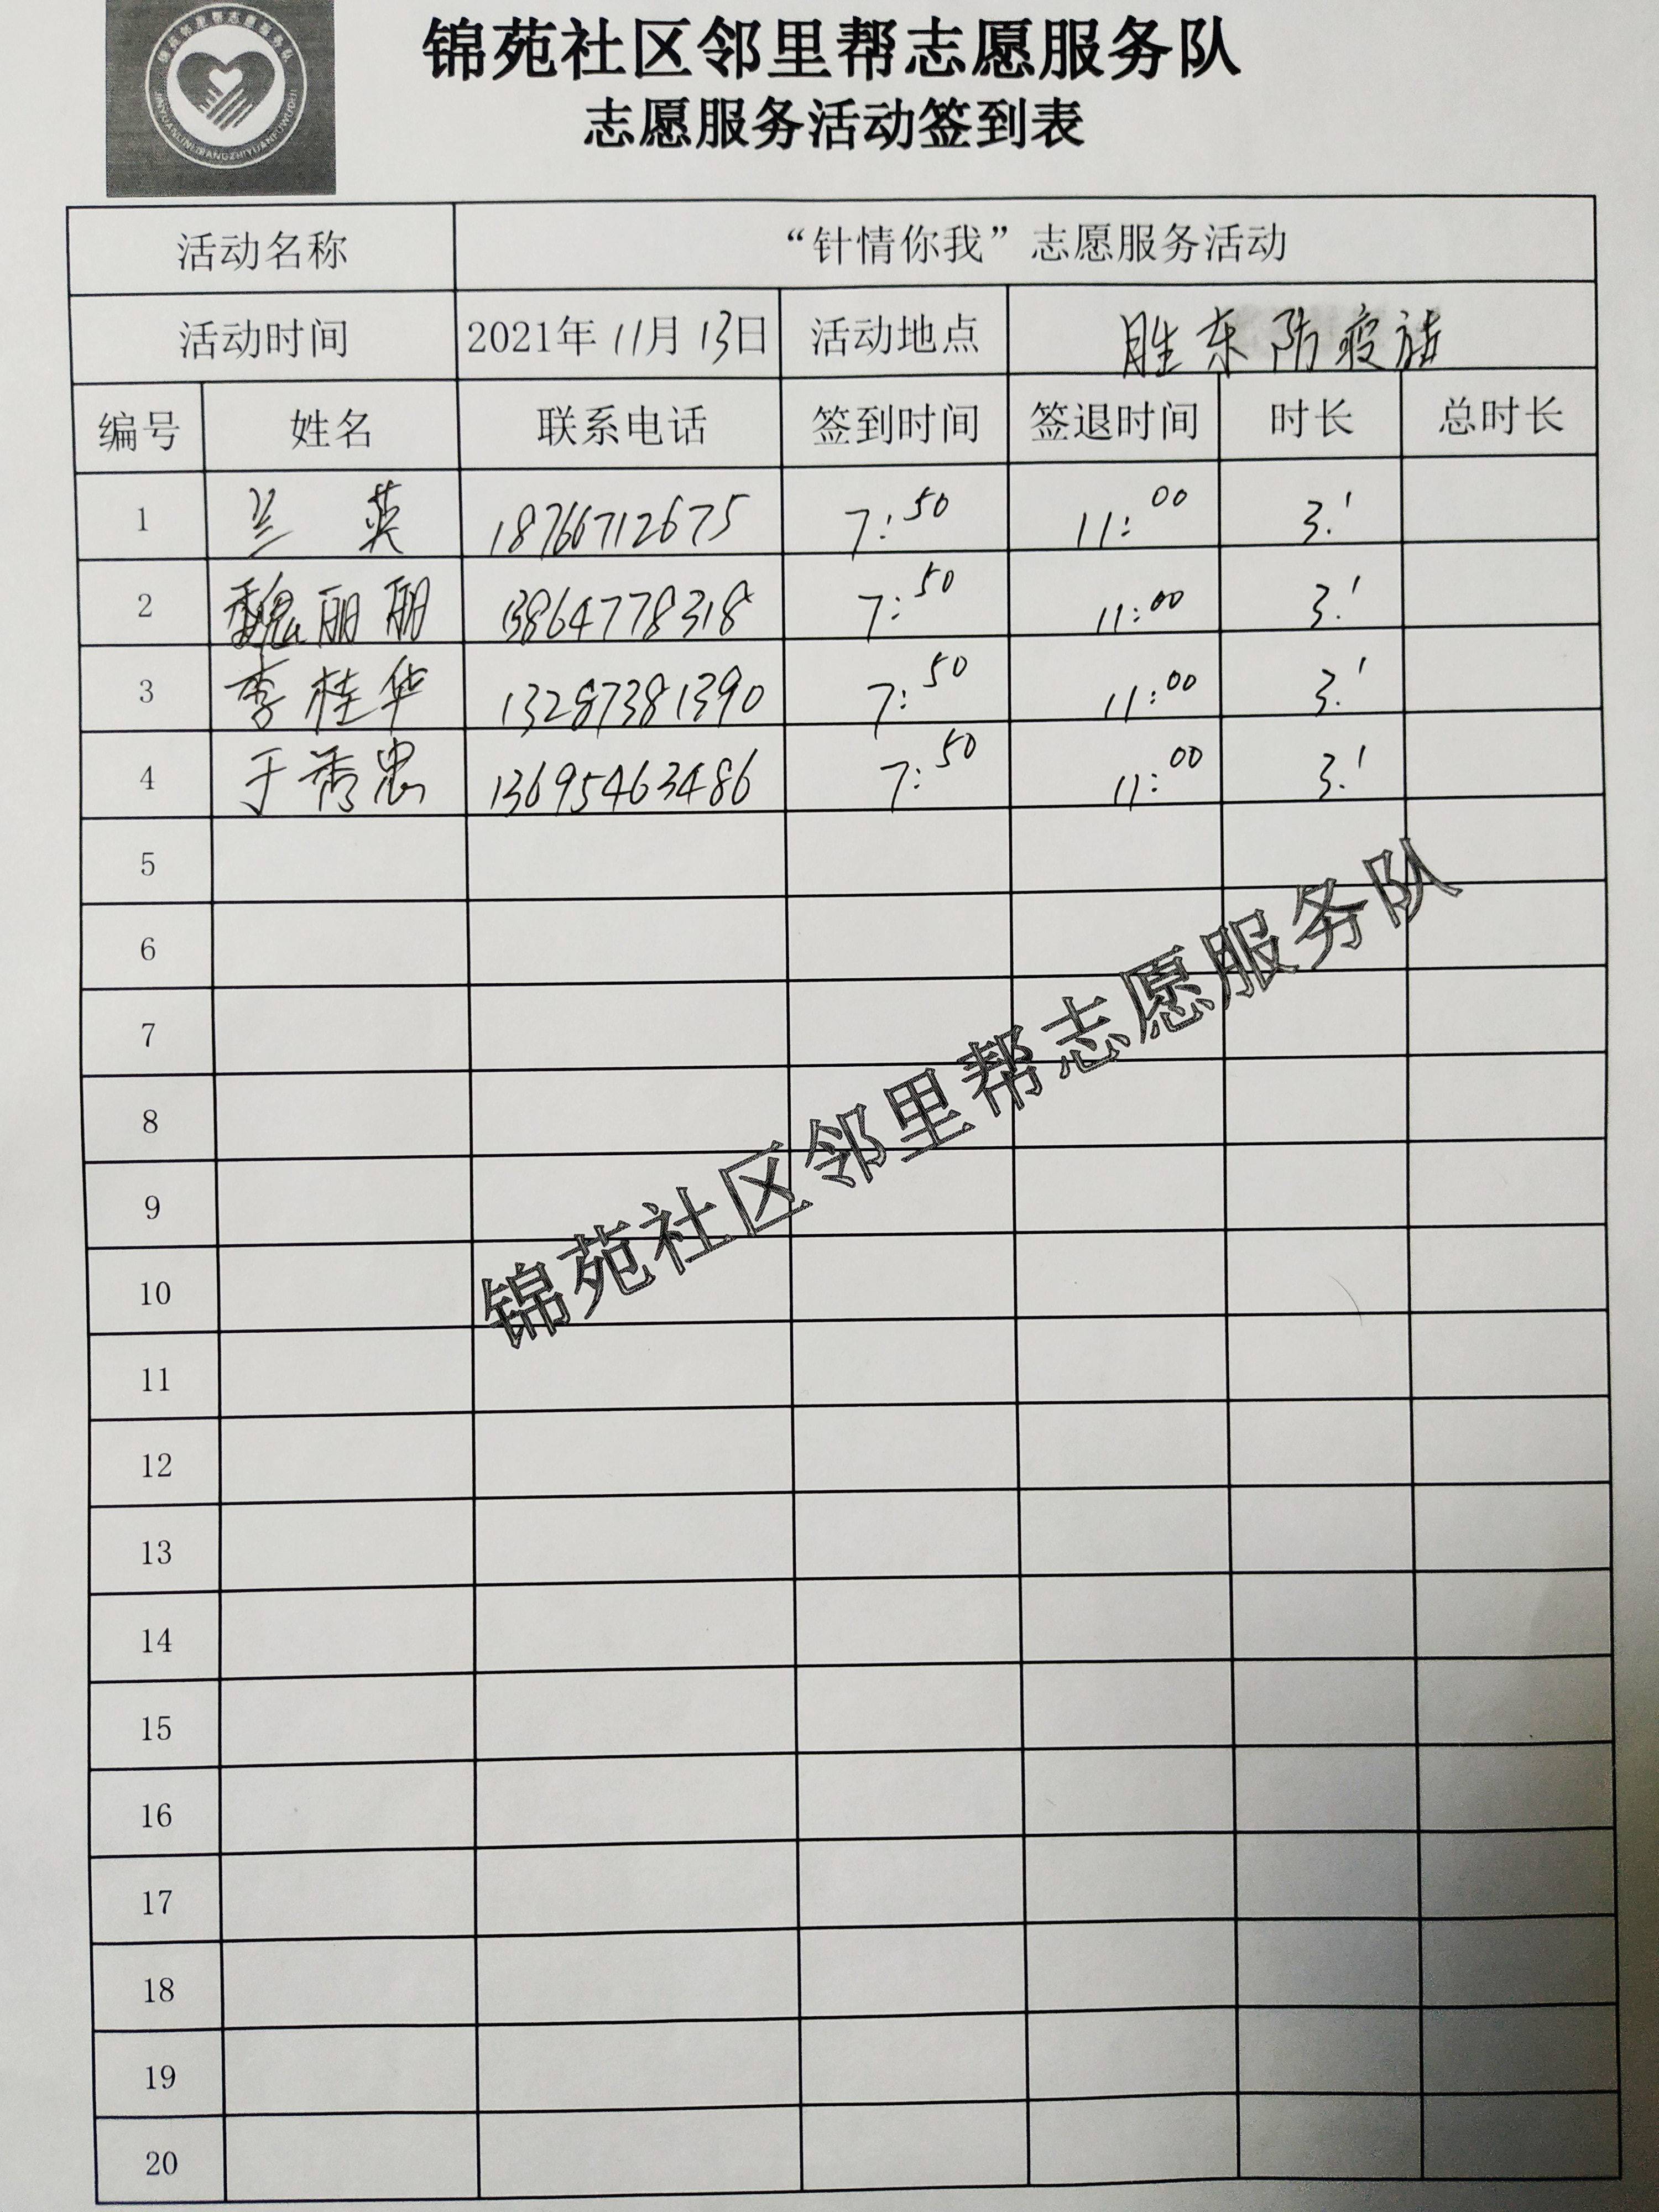 锦苑社区邻里帮志愿服务队
志愿服务活动签到表
活动名称 “针情你我”志愿服务活动
活动时间 2021年 11月 13日 活动地点 胜东防疫站
编号 姓名 联系电话 签到时间 签退时间 时长 总时长
1 兰英 18766712675 7:50 11:00 3.1
2 魏丽丽 13864778318 7:50 11:00 3.1
3 李桂华 13287381390 7:50 11:00 3.1
4 于秀忠 13695463486 7:50 11:00 3.1
5
6
7
8
9
10
11
12
13
14
15
16
17
18
19
20
锦苑社区邻里帮志愿服务队